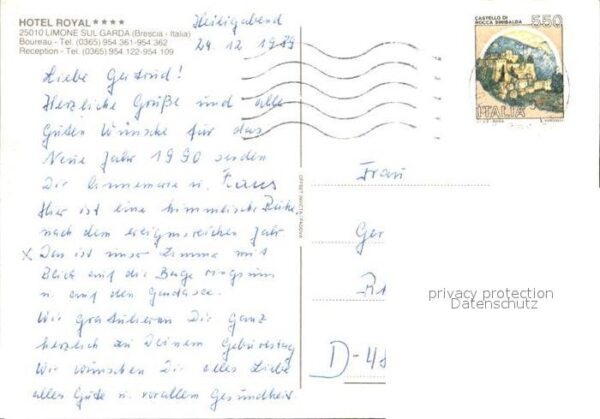 HOTEL ROYAL ★★★★
25010 LIMONE SUL GARDA (Brescia - Italia)
Boureau - Tel. (0365) 954 361-954 362
Reception - Tel. (0365) 954 122-954 109
Heiligabend
24.12.1989
Liebe Gertrud!
Herzliche Grüße und alle
Guten Wünsche für das
Neue Jahr 1990 senden
Dir Annemarie u.
Hier ist eine himmlische Ruhe
nach dem ereignisreichen Jahr
x Das ist unser Zimmer mit
Blick auf die Berge ringsum
u. auf den Gardasee.
Wir gratulieren Dir ganz
herzlich zu Deinem Geburtstag
Wir wünschen Dir alles Liebe
alles Gute u. vorallem Gesundheit
CASTELLO DI
ROCCA SINIBALDA
550
ITALIA
Frau
Ger
D-48
privacy protection
Datenschutz